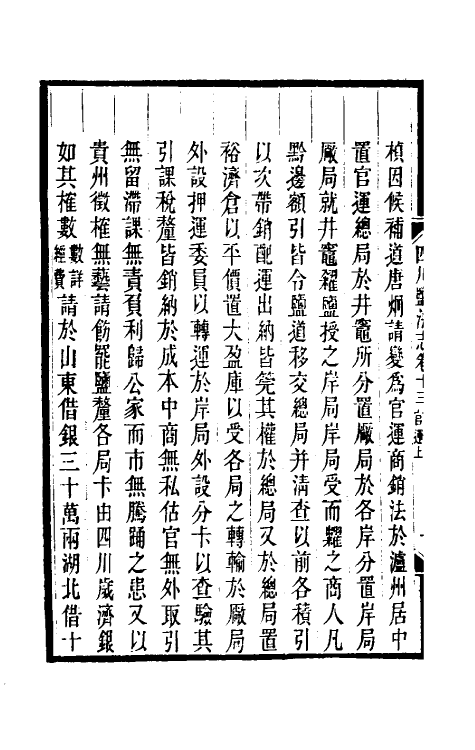 四川鹽法志卷十三官運上
楨因候補道唐炯請變爲官運商銷法於瀘州居中
置官運總局於井竈所分置廠局於各岸分置岸局
廠局就井竈糴鹽授之岸局岸局受而糶之商人凡
黔邊額引皆令鹽道移交總局并清查以前各積引
以次帶銷配運出納皆筦其權於總局又於總局置
裕濟倉以平價置大盈庫以受各局之轉輸於廠局
外設押運委員以轉運於岸局外設分卡以查驗其
引課稅釐皆銷納於成本中商無私估官無外取引
無留滯課無責負利歸公家而市無騰踊之患又以
貴州徵榷無藝請飭罷鹽釐各局卡由四川歲濟銀
如其榷數數詳經費請於山東借銀三十萬兩湖北借十